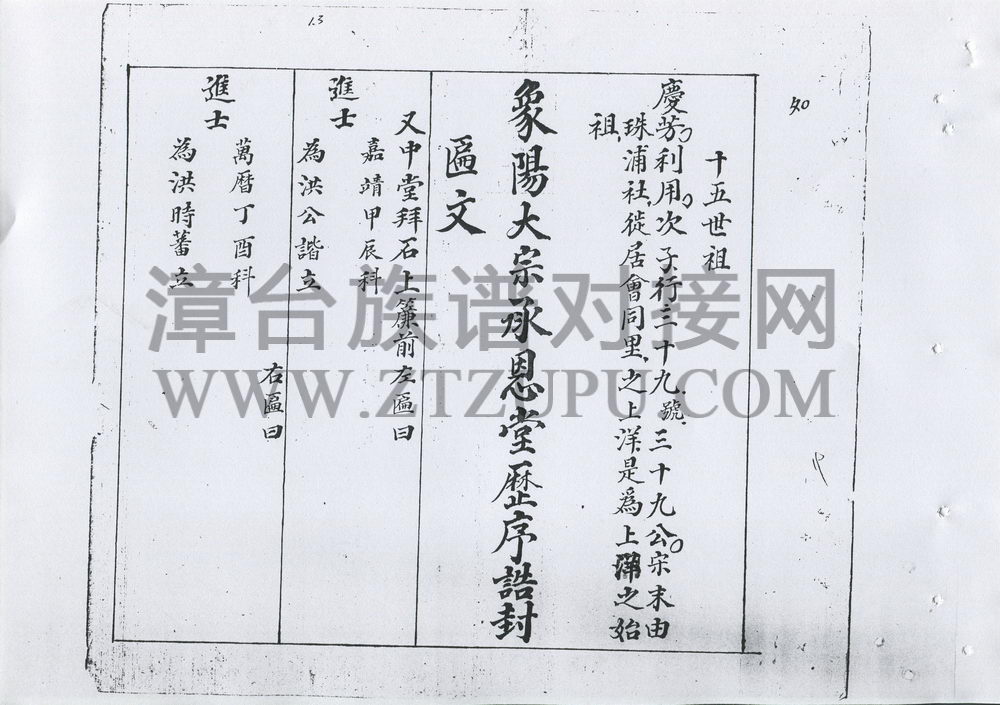 13
十五世祖
慶芳。利用。次子行三十九號三十九公。宋末由
珠浦社徙居會同里之上洋是為上之始
祖
象陽大宗承恩堂歷序誥封
匾文
又中堂拜石上簾前左匾曰
嘉靖甲辰科
進士
為洪公諧立
右匾曰
萬曆丁酉科
進士
為洪時蕃立
漳台族谱对接网
WWW.ZTZUPU.COM